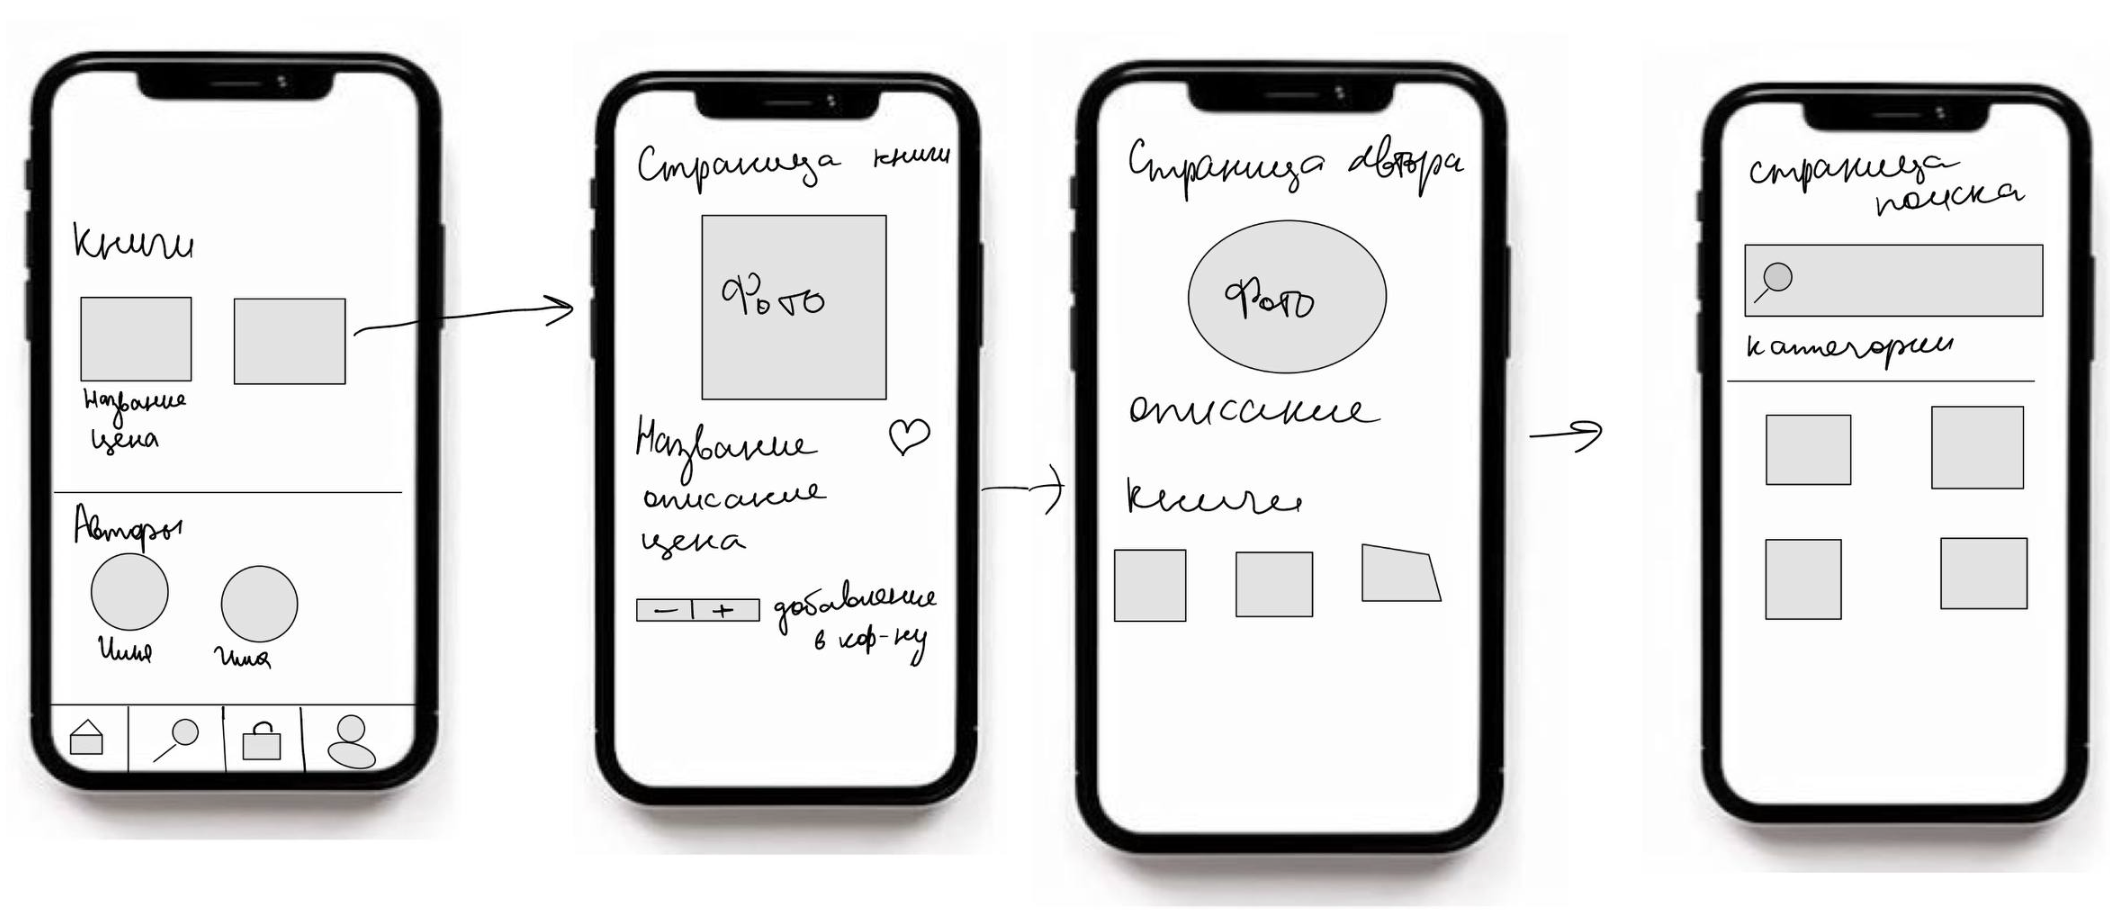 Книги
Название
цена
Авторы
Имя
Имя
Страница книги
Фото
Название
описание
цена
- +
добавление
в кор-ну
Страница автора
Фото
описание
книги
страница
поиска
категории